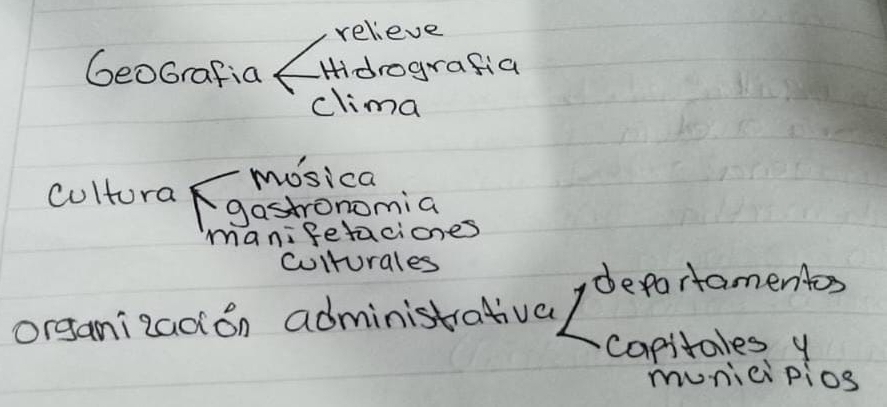 Geografia
relieve
Hidrografia
clima
cultura
música
gastronomia
manifetaciones
culturales
organización administrativa
departamentos
capitales y
municipios